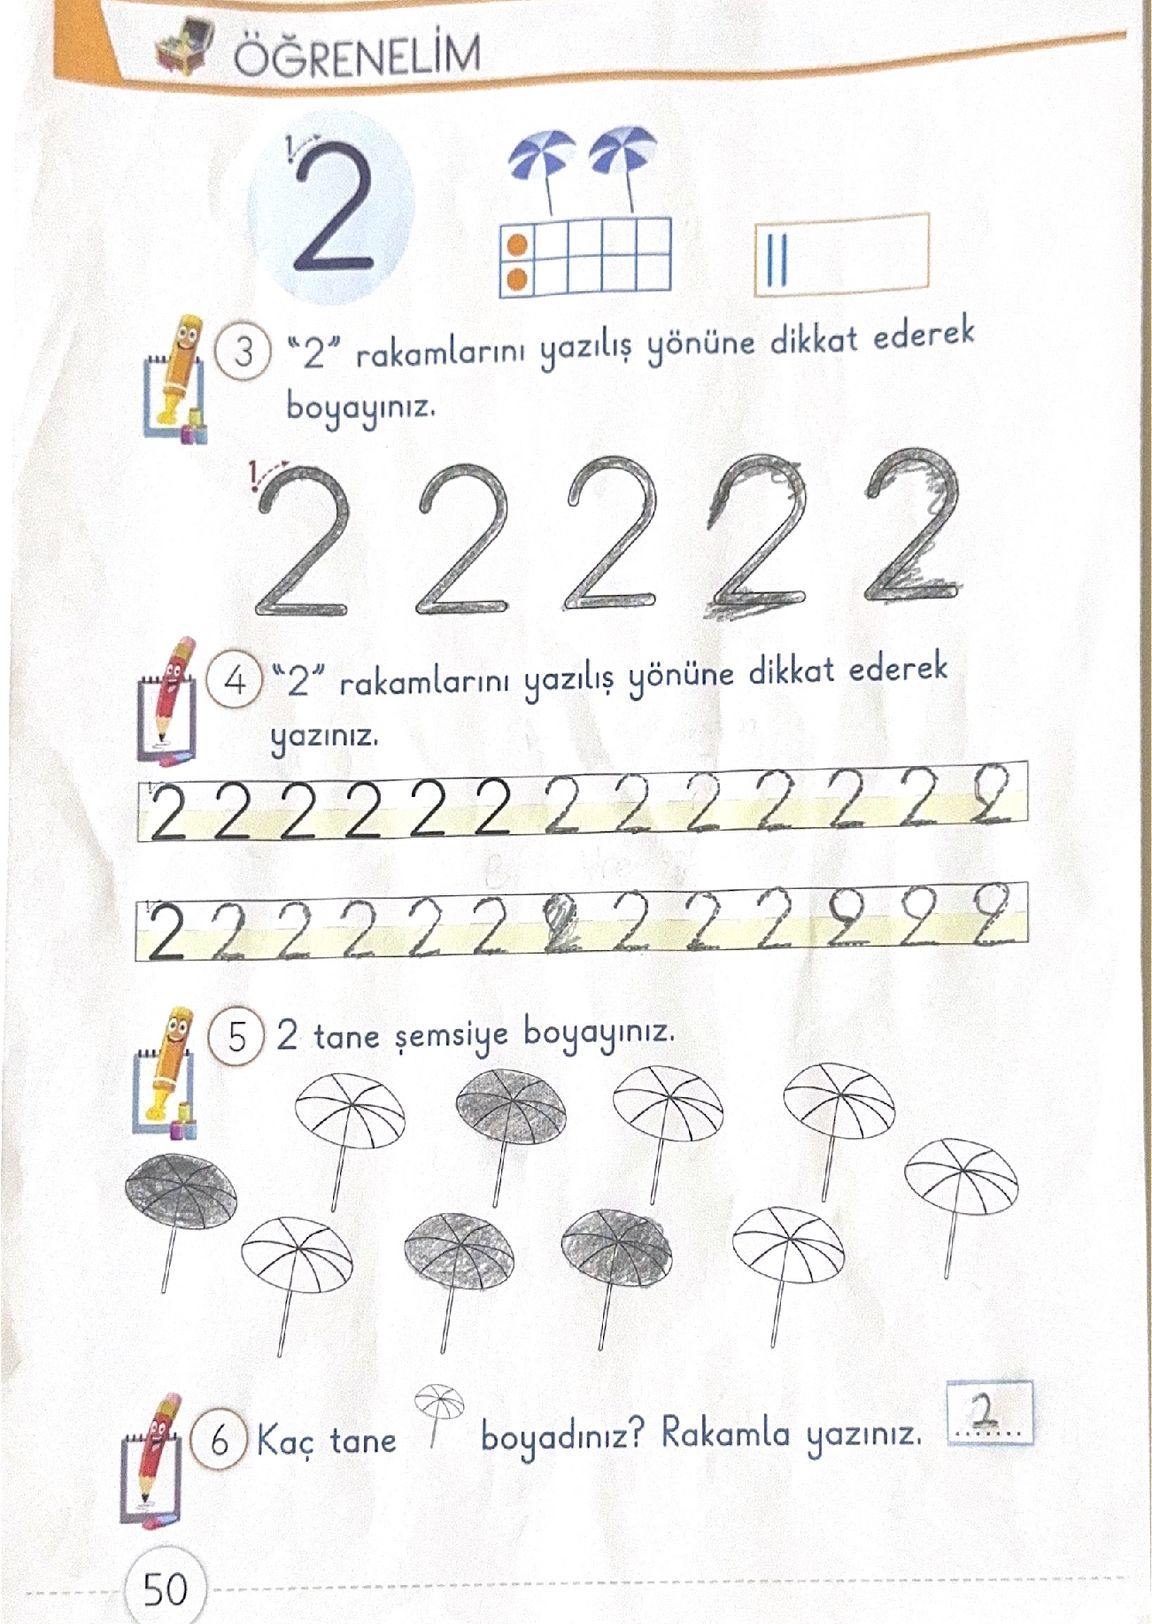 ÖĞRENELİM
1
2
3 "2" rakamlarını yazılış yönüne dikkat ederek
boyayınız.
1
2 2 2 2 2
4 "2" rakamlarını yazılış yönüne dikkat ederek
yazınız.
2 2 2 2 2 2 2 2 2 2 2 2 2
2 2 2 2 2 2 2 2 2 2 2 2 2
5 2 tane şemsiye boyayınız.
6 Kaç tane boyadınız? Rakamla yazınız. 2
50